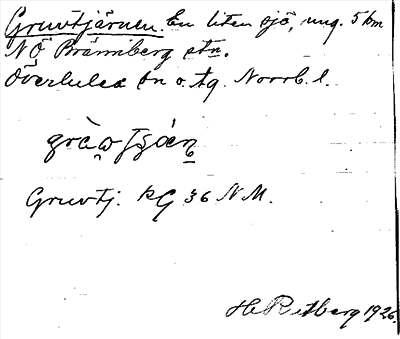 Gruvtjärnen. En liten sjö, ung. 5 km
NÖ Bränniberg stn.
Överluleå sn o. tg. Norrb. l.
Gruvtj. KG 36 N M.
H Retberg 1926.